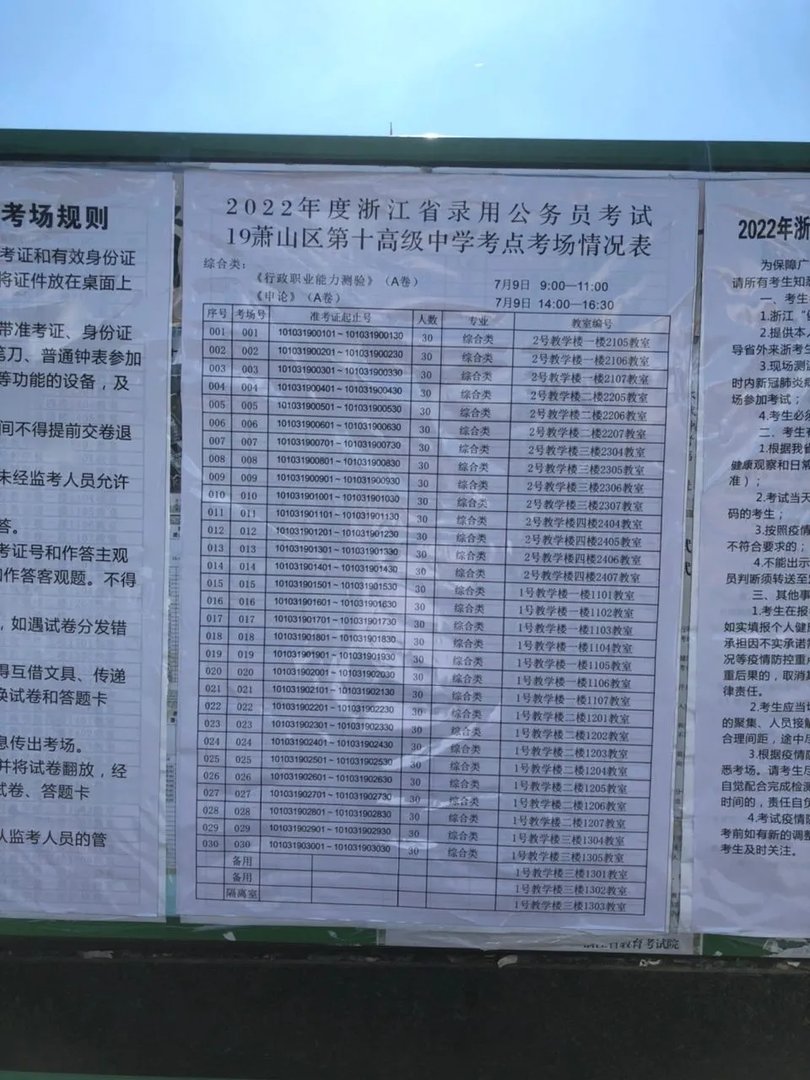 考场规则
考证和有效身份证
将证件放在桌面上
带准考证、身份证
笔刀、普通钟表参加
等功能的设备，及
间不得提前交卷退
未经监考人员允许
答。
考证号和作答主观
和作答客观题。不得
，如遇试卷分发错
得互借文具、传递
换试卷和答题卡
息传出考场。
并将试卷翻放，经
试卷、答题卡
从监考人员的管
2022年度浙江省录用公务员考试
19萧山区第十高级中学考点考场情况表
综合类：
《行政职业能力测验》（A卷） 7月9日 9:00—11:00
《申论》（A卷） 7月9日 14:00—16:30
序号 考场号 准考证起止号 人数 专业 教室编号
001 001 101031900101~101031900130 30 综合类 2号教学楼一楼2105教室
002 002 101031900201~101031900230 30 综合类 2号教学楼一楼2106教室
003 003 101031900301~101031900330 30 综合类 2号教学楼一楼2107教室
004 004 101031900401~101031900430 30 综合类 2号教学楼二楼2205教室
005 005 101031900501~101031900530 30 综合类 2号教学楼二楼2206教室
006 006 101031900601~101031900630 30 综合类 2号教学楼二楼2207教室
007 007 101031900701~101031900730 30 综合类 2号教学楼三楼2304教室
008 008 101031900801~101031900830 30 综合类 2号教学楼三楼2305教室
009 009 101031900901~101031900930 30 综合类 2号教学楼三楼2306教室
010 010 101031901001~101031901030 30 综合类 2号教学楼三楼2307教室
011 011 101031901101~101031901130 30 综合类 2号教学楼四楼2404教室
012 012 101031901201~101031901230 30 综合类 2号教学楼四楼2405教室
013 013 101031901301~101031901330 30 综合类 2号教学楼四楼2406教室
014 014 101031901401~101031901430 30 综合类 2号教学楼四楼2407教室
015 015 101031901501~101031901530 30 综合类 1号教学楼一楼1101教室
016 016 101031901601~101031901630 30 综合类 1号教学楼一楼1102教室
017 017 101031901701~101031901730 30 综合类 1号教学楼一楼1103教室
018 018 101031901801~101031901830 30 综合类 1号教学楼一楼1104教室
019 019 101031901901~101031901930 30 综合类 1号教学楼一楼1105教室
020 020 101031902001~101031902030 30 综合类 1号教学楼一楼1106教室
021 021 101031902101~101031902130 30 综合类 1号教学楼一楼1107教室
022 022 101031902201~101031902230 30 综合类 1号教学楼二楼1201教室
023 023 101031902301~101031902330 30 综合类 1号教学楼二楼1202教室
024 024 101031902401~101031902430 30 综合类 1号教学楼二楼1203教室
025 025 101031902501~101031902530 30 综合类 1号教学楼二楼1204教室
026 026 101031902601~101031902630 30 综合类 1号教学楼二楼1205教室
027 027 101031902701~101031902730 30 综合类 1号教学楼二楼1206教室
028 028 101031902801~101031902830 30 综合类 1号教学楼二楼1207教室
029 029 101031902901~101031902930 30 综合类 1号教学楼三楼1304教室
030 030 101031903001~101031903030 30 综合类 1号教学楼三楼1305教室
备用 1号教学楼三楼1301教室
备用 1号教学楼三楼1302教室
隔离室 1号教学楼三楼1303教室
浙江省教育考试院
2022年浙
为保障广
请所有考生知
一、考生
1.浙江“
2.提供本
导省外来浙考生
3.现场测
时内新冠肺炎
场参加考试；
4.考生必须
二、考生
1.根据我省
健康观察和日常
准）；
2.考试当天
码的考生；
3.按照疫情
不符合要求的；
4.不能出示
员判断须转送至
三、其他事
1.考生在报
如实填报个人健康
承担因不实承诺
况等疫情防控重
重后果的，取消
律责任。
2.考生应当
的聚集、人员接
合理间距，途中
3.根据疫情防
悉考场。请考生
自觉配合完成检测
时间的，责任自负
4.考试疫情防
考前如有新的调整
考生及时关注。